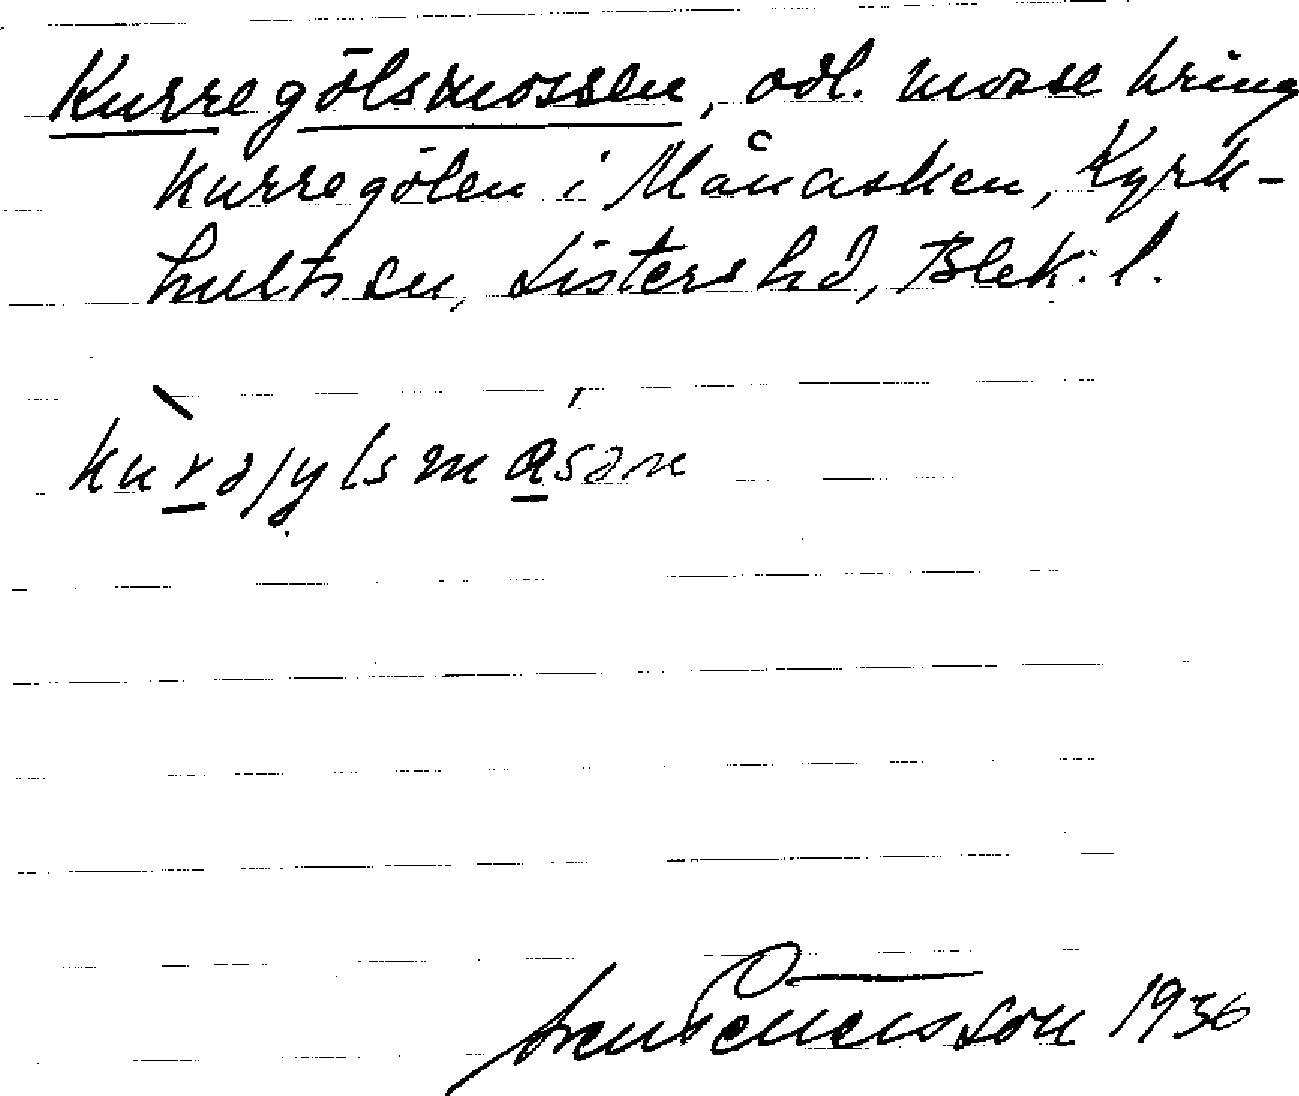 Kurregölsmossen, odl. mosse kring
Kurregölen i Månasken, Kyrk-
hults sn, Listers hd, Blek. l.
kurəjylsmasən
1936